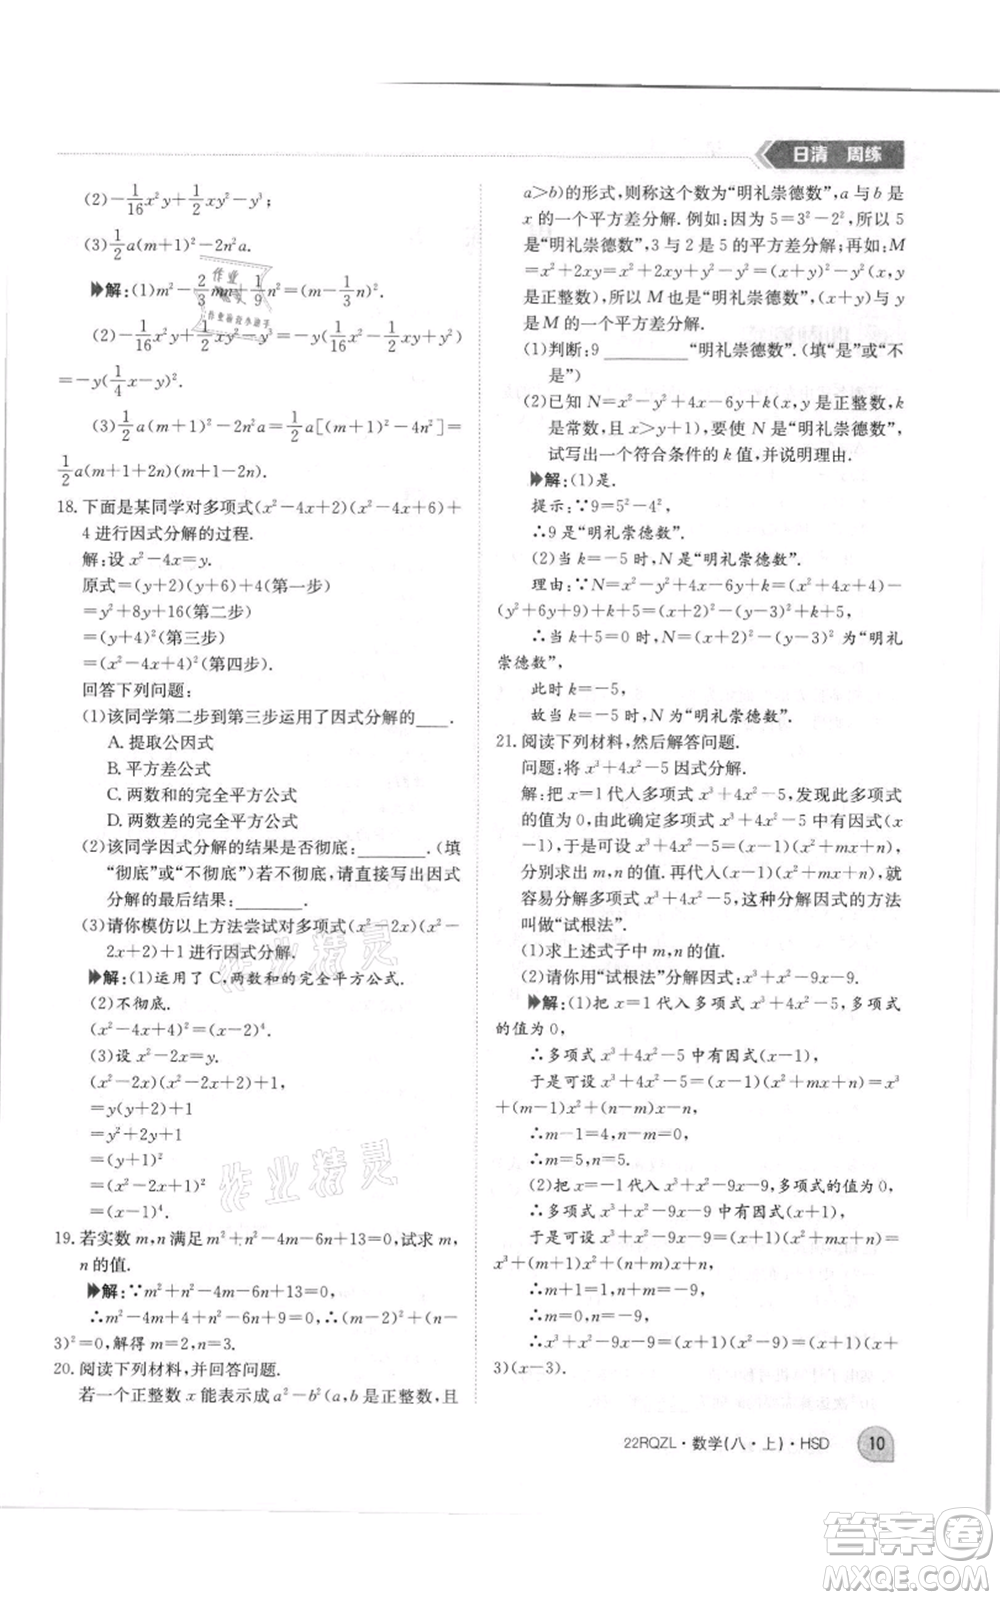 日清 周练
(2)−1/16x²y+1/2xy²−y³;
(3)1/2a(m+1)²−2n²a.
解:(1)m²−2/3mn+1/9n²=(m−1/3n)².
(2)−1/16x²y+1/2xy²−y³
=−y(1/4x−y)².
(3)1/2a(m+1)²−2n²a=1/2a[(m+1)²−4n²]=
1/2a(m+1+2n)(m+1−2n).
18. 下面是某同学对多项式(x²−4x+2)(x²−4x+6)+
4进行因式分解的过程.
解:设x²−4x=y.
原式=(y+2)(y+6)+4(第一步)
=y²+8y+16(第二步)
=(y+4)²(第三步)
=(x²−4x+4)²(第四步).
回答下列问题:
(1)该同学第二步到第三步运用了因式分解的____.
A. 提取公因式
B. 平方差公式
C. 两数和的完全平方公式
D. 两数差的完全平方公式
(2)该同学因式分解的结果是否彻底:________.(填
“彻底”或“不彻底”)若不彻底,请直接写出因式
分解的最后结果:________.
(3)请你模仿以上方法尝试对多项式(x²−2x)(x²−
2x+2)+1进行因式分解.
解:(1)运用了C,两数和的完全平方公式.
(2)不彻底.
(x²−4x+4)²=(x−2)⁴.
(3)设x²−2x=y.
(x²−2x)(x²−2x+2)+1
=y(y+2)+1
=y²+2y+1
=(y+1)²
=(x²−2x+1)²
=(x−1)⁴.
19. 若实数m,n满足m²+n²−4m−6n+13=0,试求m,
n的值.
解:∵m²+n²−4m−6n+13=0,
∴m²−4m+4+n²−6n+9=0,∴(m−2)²+(n−
3)²=0,解得m=2,n=3.
20. 阅读下列材料,并回答问题.
若一个正整数x能表示成a²−b²(a,b是正整数,且
a>b)的形式,则称这个数为“明礼崇德数”,a与b是
x的一个平方差分解. 例如:因为5=3²−2²,所以5
是“明礼崇德数”,3与2是5的平方差分解;再如:M
=x²+2xy=x²+2xy+y²−y²=(x+y)²−y²(x,y
是正整数),所以M也是“明礼崇德数”,(x+y)与y
是M的一个平方差分解.
(1)判断:9________“明礼崇德数”.(填“是”或“不
是”)
(2)已知N=x²−y²+4x−6y+k(x,y是正整数,k
是常数,且x>y+1),要使N是“明礼崇德数”,
试写出一个符合条件的k值,并说明理由.
解:(1)是.
提示:∵9=5²−4²,
∴9是“明礼崇德数”.
(2)当k=−5时,N是“明礼崇德数”.
理由:∵N=x²−y²+4x−6y+k=(x²+4x+4)−
(y²+6y+9)+k+5=(x+2)²−(y+3)²+k+5,
∴当k+5=0时,N=(x+2)²−(y+3)²为“明礼
崇德数”,
此时k=−5,
故当k=−5时,N为“明礼崇德数”.
21. 阅读下列材料,然后解答问题.
问题:将x³+4x²−5因式分解.
解:把x=1代入多项式x³+4x²−5,发现此多项式
的值为0,由此确定多项式x³+4x²−5中有因式(x
−1),于是可设x³+4x²−5=(x−1)(x²+mx+n),
分别求出m,n的值.再代入x³+4x²−5,就
容易分解多项式x³+4x²−5,这种分解因式的方法
叫做“试根法”.
(1)求上述式子中m,n的值.
(2)请你用“试根法”分解因式:x³+x²−9x−9.
解:(1)把x=1代入多项式x³+4x²−5,多项式
的值为0,
∴多项式x³+4x²−5中有因式(x−1),
于是可设x³+4x²−5=(x−1)(x²+mx+n)=x³
+(m−1)x²+(n−m)x−n,
∴m−1=4,n−m=0,
∴m=5,n=5.
(2)把x=−1代入x³+x²−9x−9,多项式的值为0,
∴多项式x³+x²−9x−9中有因式(x+1),
于是可设x³+x²−9x−9=(x+1)(x²+mx+n)=
x³+(m+1)x²+(n+m)x+n,
∴m+1=1,n+m=−9,
∴m=0,n=−9,
∴x³+x²−9x−9=(x+1)(x²−9)=(x+1)(x+
3)(x−3).
22RQZL·数学(八·上)·HSD 10
作业精灵
作业精灵
答案卷
MXQE.COM